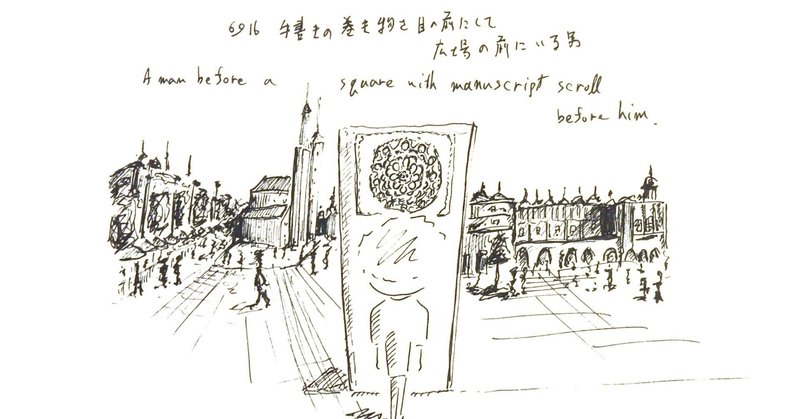 6916 手書きの巻き物を目の前にして
広場の前にいる男
A man before a square with manuscript scroll
before him.